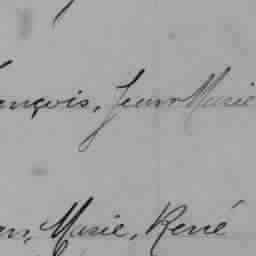 ançois, Jean Marie
an, Marie, René